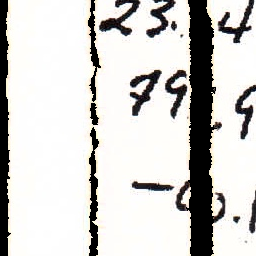 23.4
79.9
-0.1